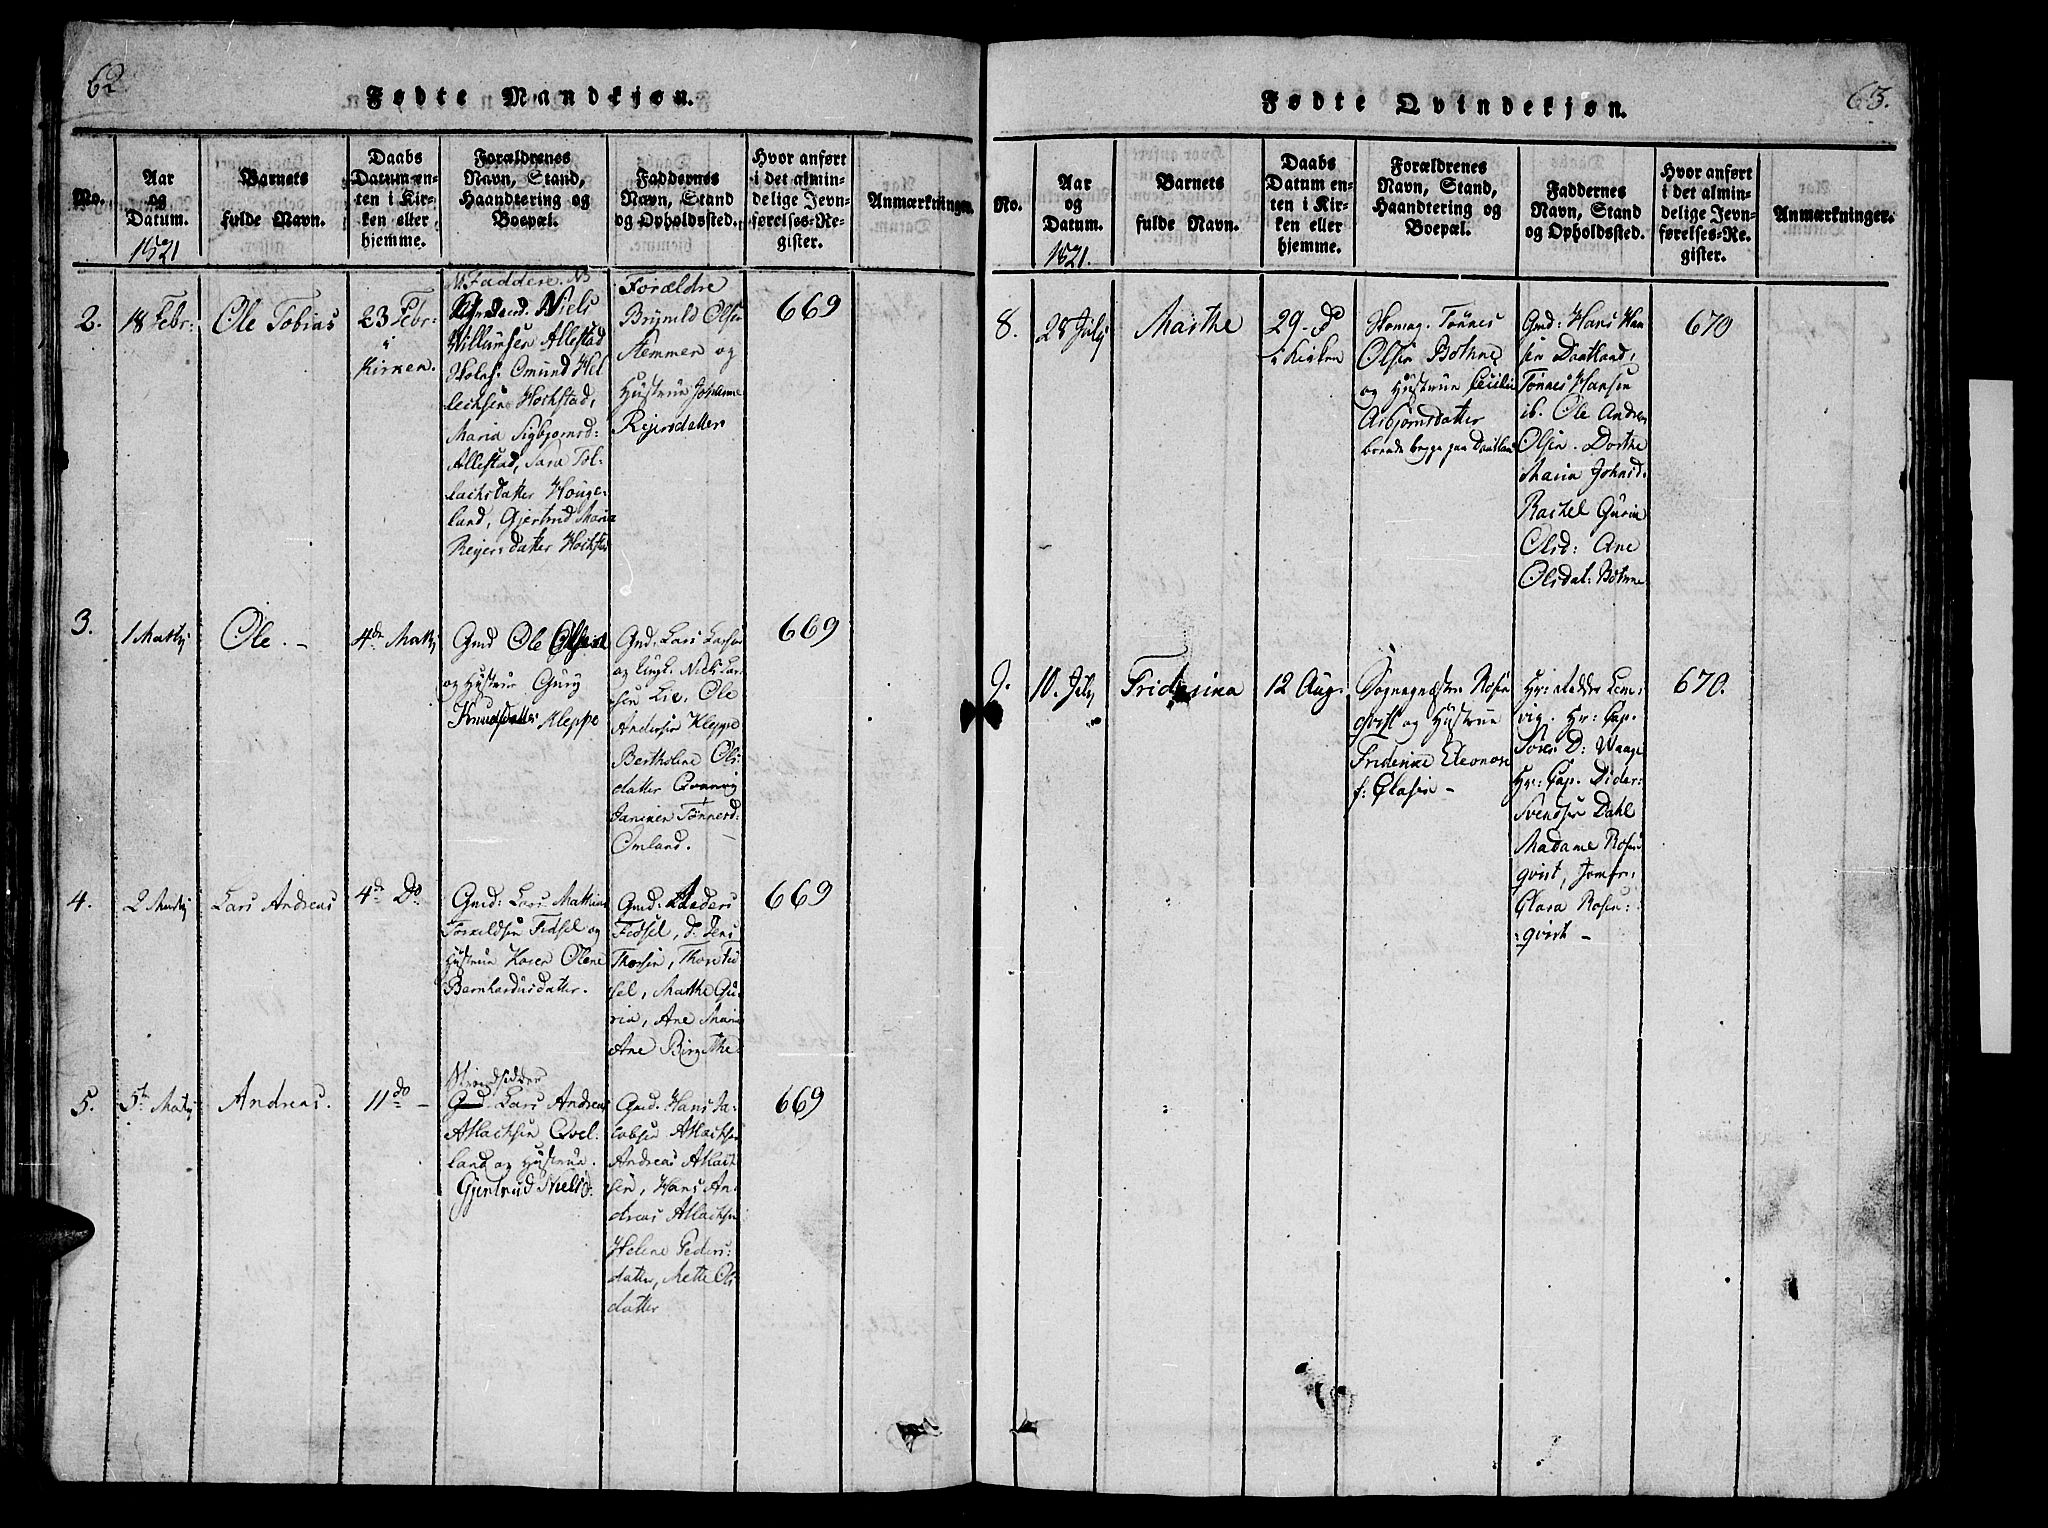 62
Fødte Mandkjøn.
No.
Aar
og
Datum.
1821
Barnets
fulde Navn.
Daabs
Datum en-
ten i Kir-
ken eller
hjemme.
Forældrenes
Navn, Stand,
Haandtering og
Boepæl.
Faddernes
Navn, Stand
og Opholdssted.
Hvor anført
i det almin-
delige Jevn-
førelses-Re-
gister.
Anmærkninger.
2.
18 Febr:
Ole Tobias
23 Febr:
i
Kirken.
Faddere NB
Niels
Willumsen Allestad
Omund Hel
lechsen Hochstad,
Maria Sigbjørnsd:
Allestad, Sara Tol-
lachsdatter Houge-
land, Gjertrud Maria
Reijersdatter Hochstad
Forældre
Brynild Olsen
Stemmen og
Hustrue Johanne
Reijersdatter
669
3.
1 Martij
Ole. -
4de Martij
Gmd Ole Olsen
og Hustrue Gury
Knudsdatter Kleppe
Gmd: Lars Larsen
og Ungk. Niels Lar-
sen Lie, Ole
Andersen Kleppe
Bertholine Ols
datter Qvanvig
Janiken Tønnesd:
Omland.
669
4.
2 Martij
Lars Andreas
4de Do
Gmd: Lars Mathias
Torkildsen Fidsel og
Hustrue Karen Olene
Bernhardusdatter.
Gmd: Anders
Fidsel, d: Jens
Thorsen, Thore Fid
sel, Marthe Gu-
ria, Ane Maria
Ane Birgithe
669
5.
5te Martij
Andreas.
11 do -
Strandsidder
Gmd Lars Andreas
Atlachsen Qvel-
land og Hustrue.
Gjertrud Nielsd.
Gmd. Hans Ja-
cobsen Atlachsen
Andreas Atlach
sen, Hans An-
dreas Atlachsen
Helene Peders:
datter, Mette Ols
datter
669
63.
Fødte Qvindekjøn.
No.
Aar
og
Datum.
1821.
Barnets
fulde Navn.
Daabs
Datum en-
ten i Kir-
ken eller
hjemme.
Forældrenes
Navn, Stand,
Haandtering og
Boepæl.
Faddernes
Navn, Stand
og Opholdsted.
Hvor anført
i det almin-
delige Jevn-
førelses-Re-
gister.
Anmærkninger.
8.
28 July
Marthe
29 - do
i Kirken
Skomag: Tønnes
Olsen Bothne
og Hustrue Cecilie
Asbjørnsdatter
boende begge paa Dautland
Gmd: Hans Han
sen Dautland,
Tønnes Hansen
ib. Ole Andreas
Olsen. Dorthe
Maria Johnsd:
Rachel Guria
Olsd: Ane
Olsdat: Bothne
670
9.
10. July
Friderica
12 Aug:
Sognepræsten Rosen
qvist og Hustrue
Friderikke Eleonore
f: Olasen -
Hr: Lem-
vig. Hr: Cap.
Søren D: Waage
Hr: Cap. Dider:
Svendsen Dahl
Madame Rosen
qvist, Jomfr:
Clara Rosen:
qvist -
670.